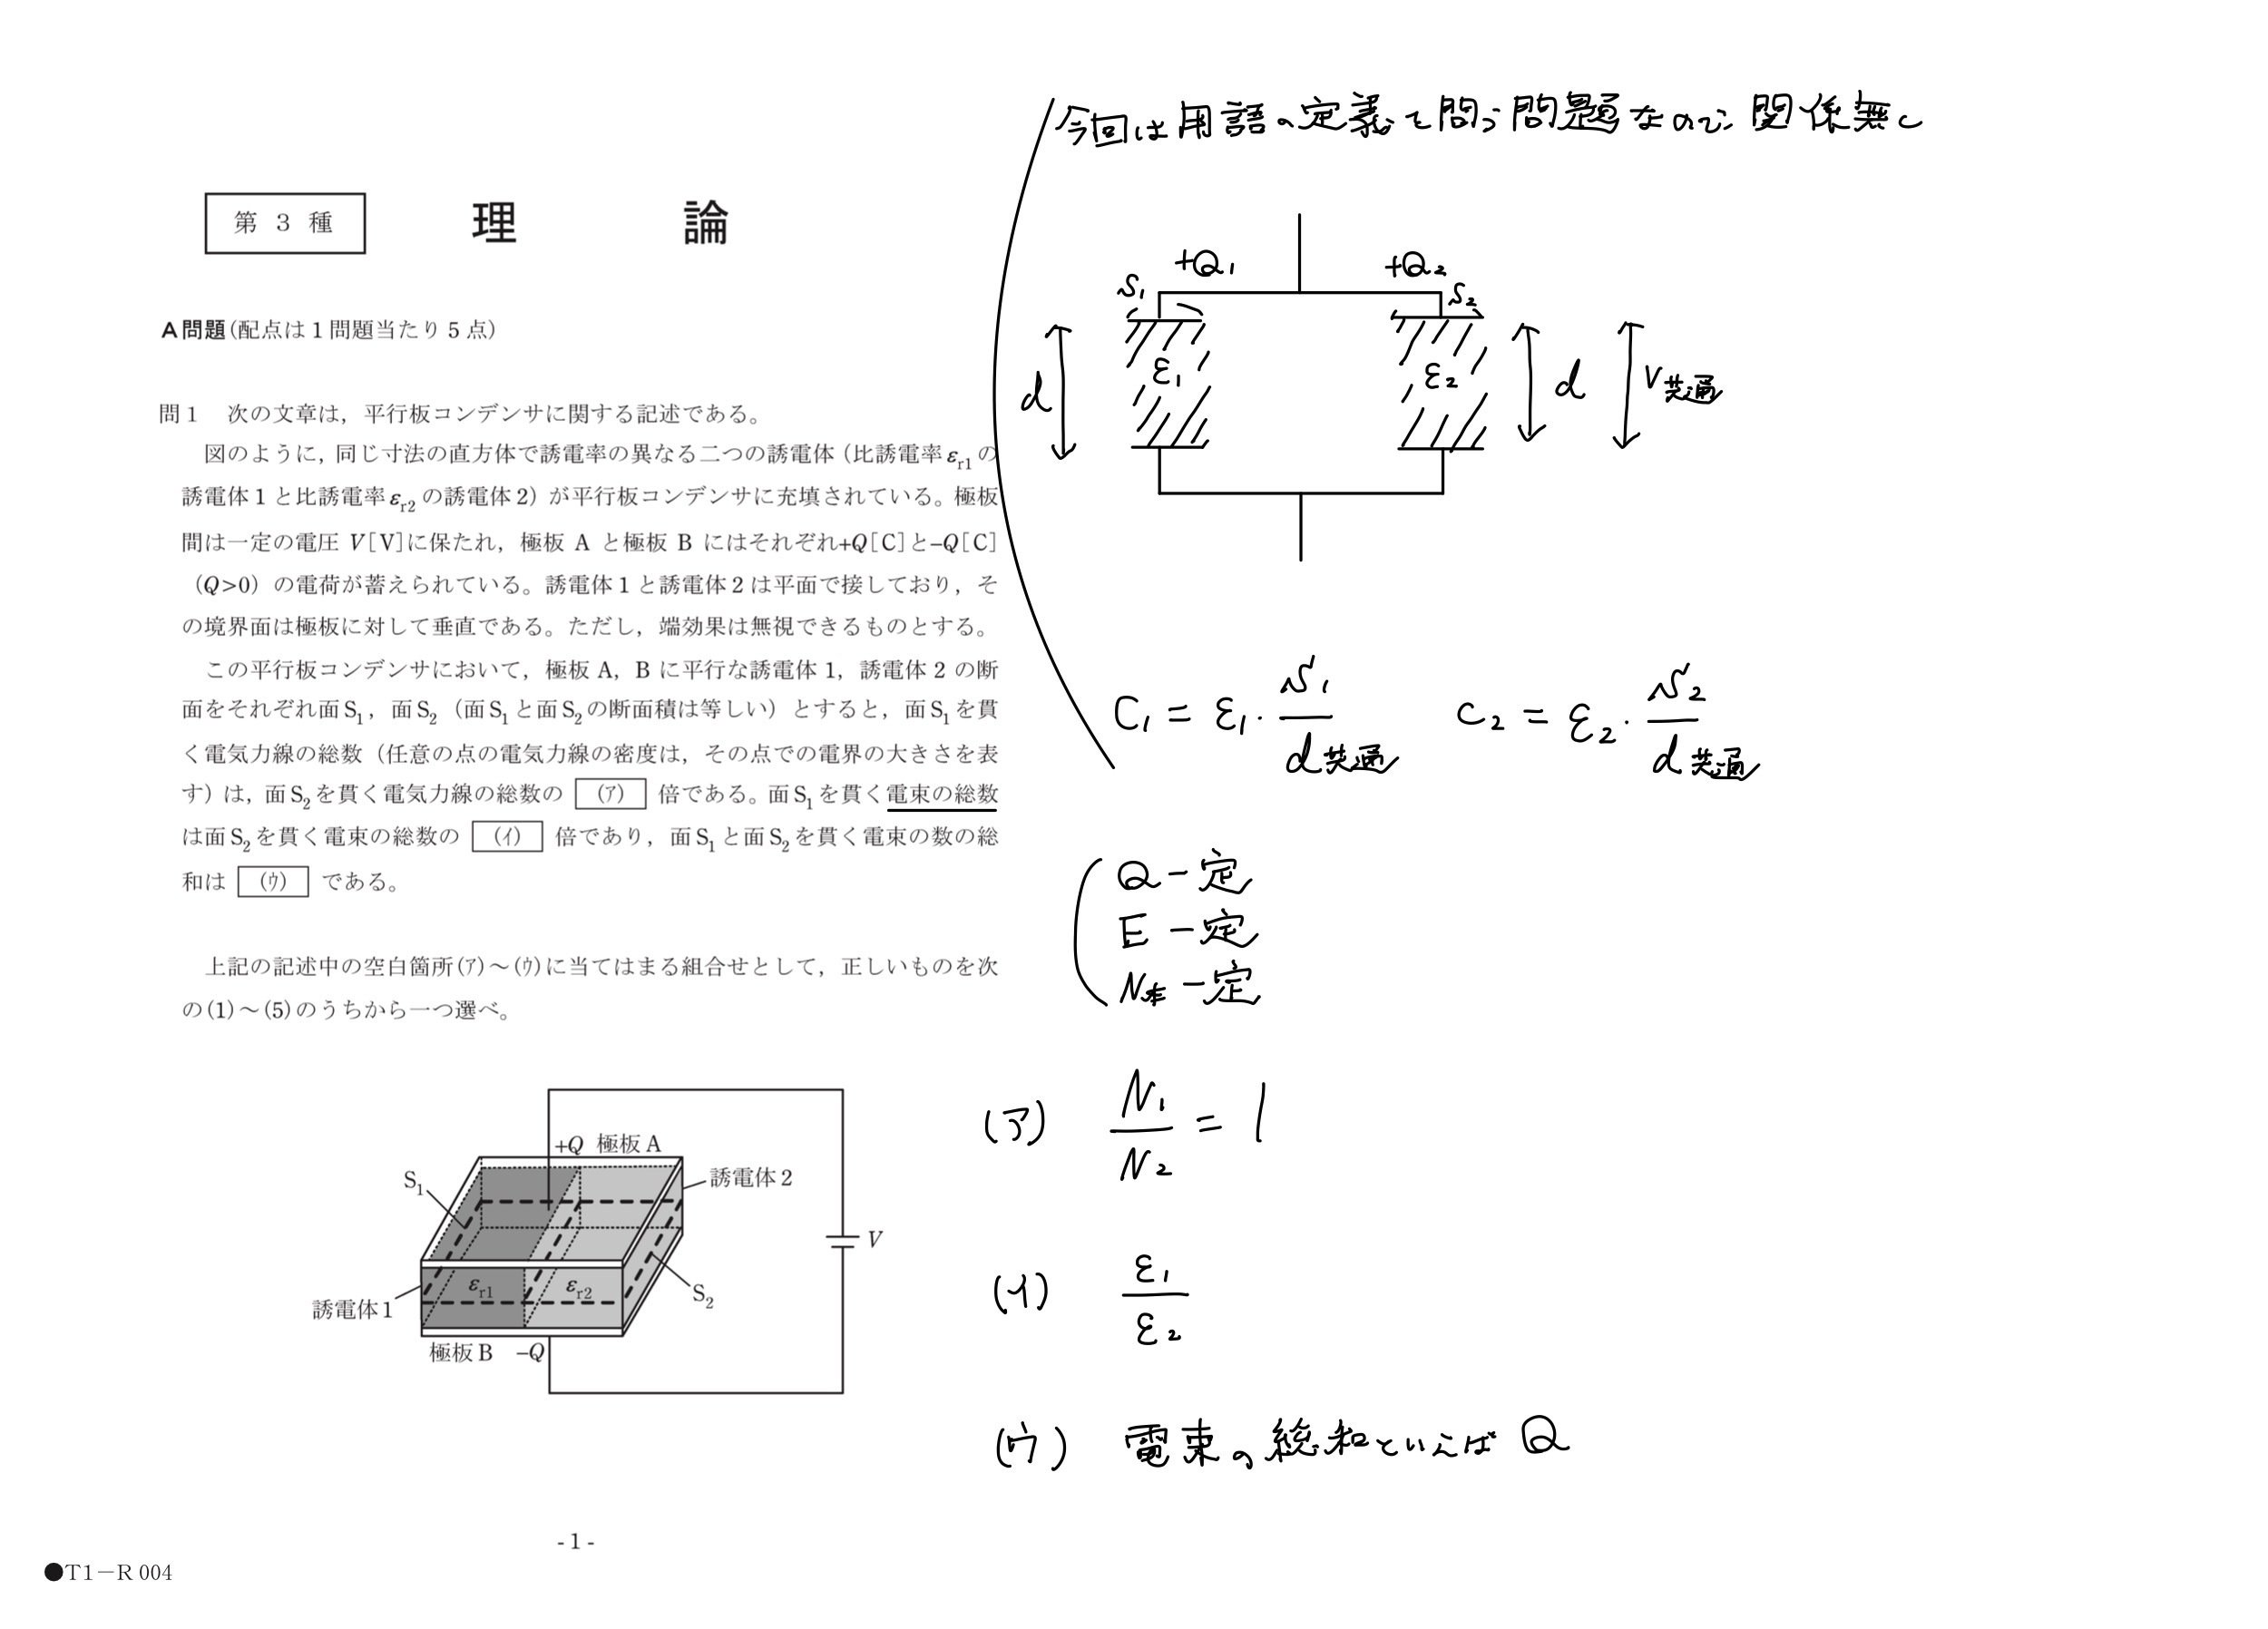 今回は用語の定義を問う問題なので関係無し
第 3 種
理 論
A問題(配点は1問題当たり5点)
問1 次の文章は，平行板コンデンサに関する記述である。
図のように，同じ寸法の直方体で誘電率の異なる二つの誘電体（比誘電率εr1の
誘電体1と比誘電率εr2の誘電体2）が平行板コンデンサに充填されている。極板
間は一定の電圧 V[V]に保たれ，極板 A と極板 B にはそれぞれ+Q[C]と−Q[C]
（Q>0）の電荷が蓄えられている。誘電体1と誘電体2は平面で接しており，そ
の境界面は極板に対して垂直である。ただし，端効果は無視できるものとする。
この平行板コンデンサにおいて，極板 A，B に平行な誘電体 1，誘電体 2 の断
面をそれぞれ面S1，面S2（面S1と面S2の断面積は等しい）とすると，面S1を貫
く電気力線の総数（任意の点の電気力線の密度は，その点での電界の大きさを表
す）は，面S2を貫く電気力線の総数の (ア) 倍である。面S1を貫く電束の総数
は面S2を貫く電束の総数の (イ) 倍であり，面S1と面S2を貫く電束の数の総
和は (ウ) である。
上記の記述中の空白箇所(ア)～(ウ)に当てはまる組合せとして，正しいものを次
の(1)～(5)のうちから一つ選べ。
+Q 極板A
S1
誘電体2
V
εr1
εr2
S2
誘電体1
極板B −Q
- 1 -
●T1－R 004
+Q1
+Q2
S1
S2
d
ε1
ε2
d
V共通
C1 = ε1・S1/d共通
C2 = ε2・S2/d共通
Q 一定
E 一定
N本 一定
(ア) N1/N2 = 1
(イ) ε1/ε2
(ウ) 電束の総和といえば Q